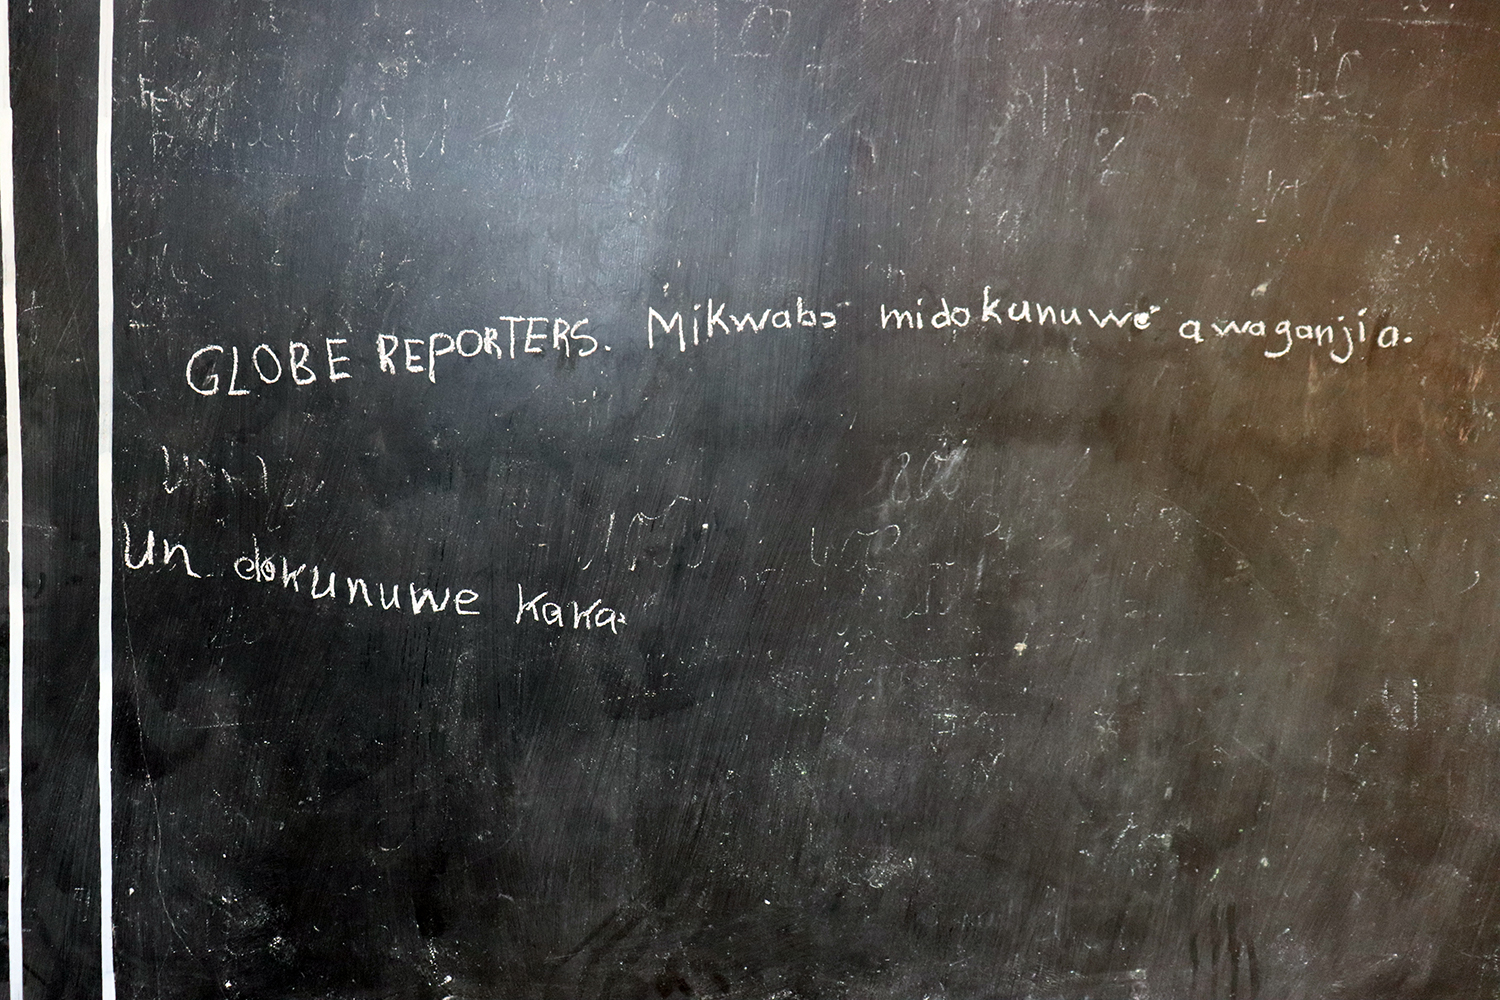 GLOBE REPORTERS. Mikwabɔ midokunuwé awaganjia.
Un dokunuwe kaka.